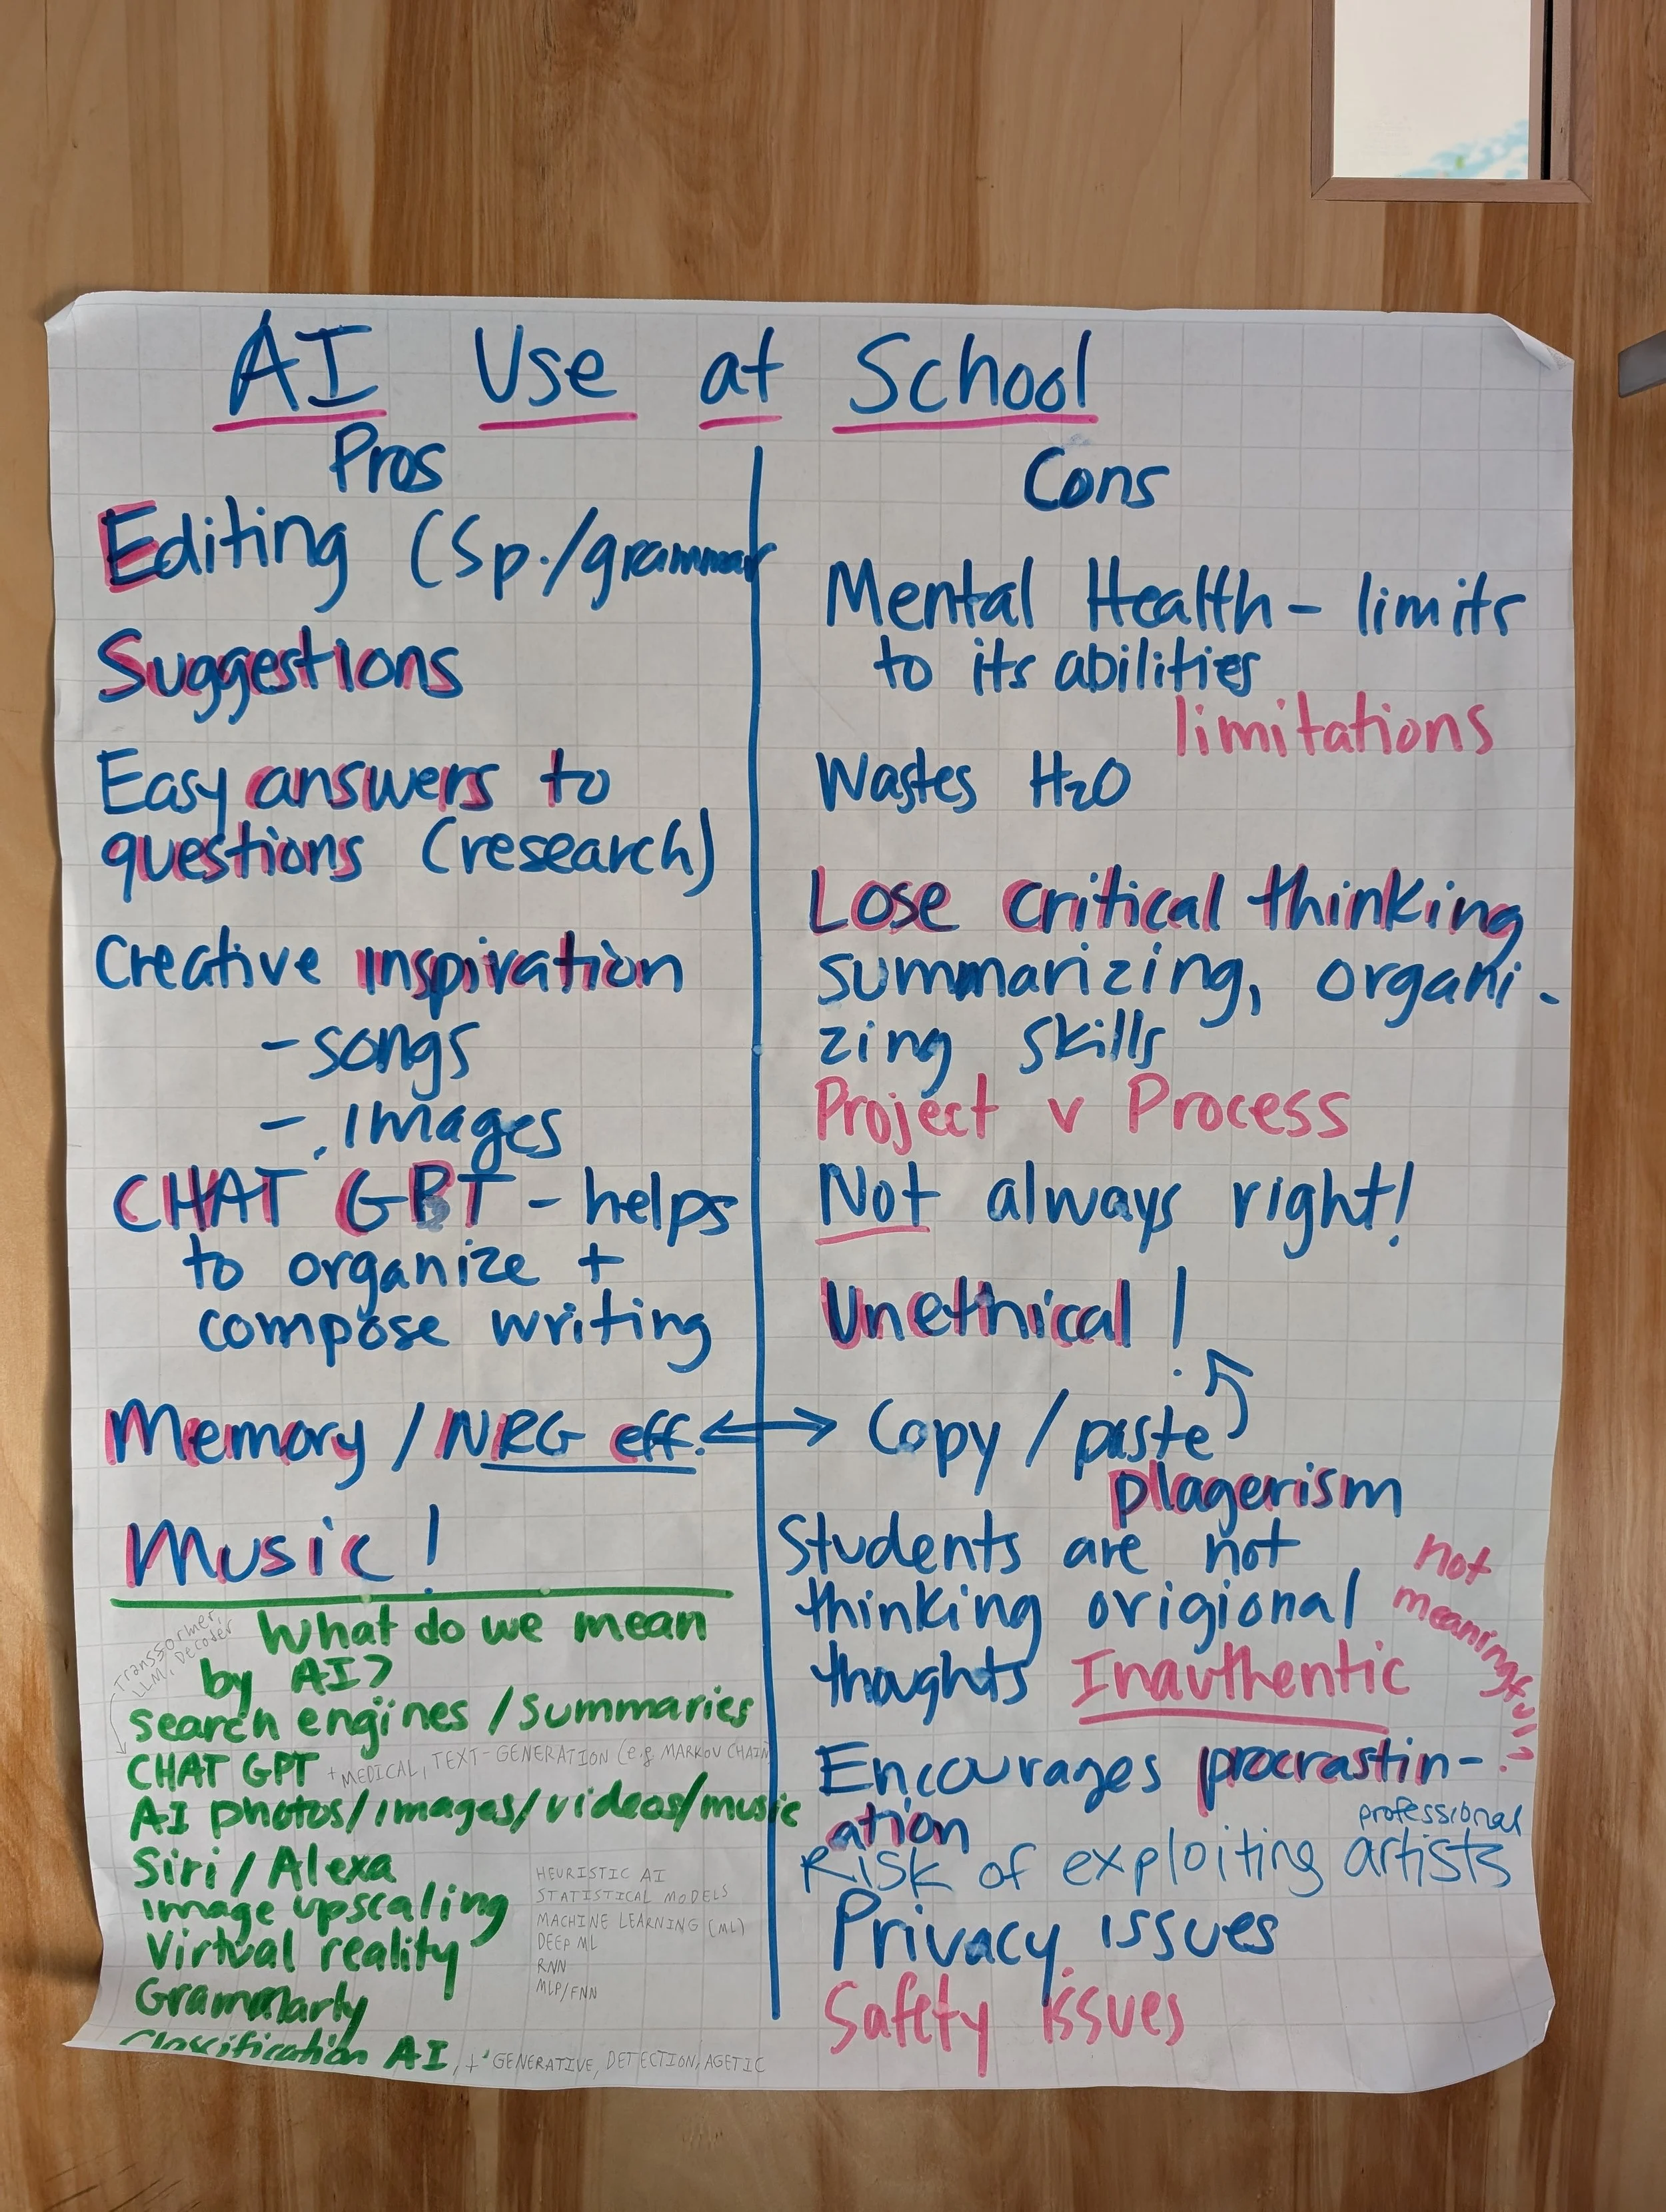 AI Use at School
Pros
Editing (Sp./grammar
Suggestions
Easy answers to
questions (research)
Creative inspiration
- songs
- images
CHAT GPT - helps
to organize +
compose writing
Memory / NRG eff.
Music!
What do we mean
by AI?
Transformer,
LLM, Decoder
search engines / summaries
CHAT GPT + MEDICAL, TEXT-GENERATION (e.g. MARKOV CHAIN
AI photos/images/videos/music
Siri / Alexa
Image upscaling
Virtual reality
Grammarly
HEURISTIC AI
STATISTICAL MODELS
MACHINE LEARNING (ML)
DEEP ML
RNN
MLP/FNN
Classification AI, + GENERATIVE, DETECTION, AGETIC
Cons
Mental Health - limits
to its abilities
limitations
Wastes H2O
Lose critical thinking
summarizing, organi-
zing skills
Project v Process
Not always right!
Unethical!
Copy / paste
plagerism
Students are not
thinking origional
thoughts Inauthentic
not
meaningful?
Encourages procrastin-
ation
professional
Risk of exploiting artists
Privacy issues
Safety issues